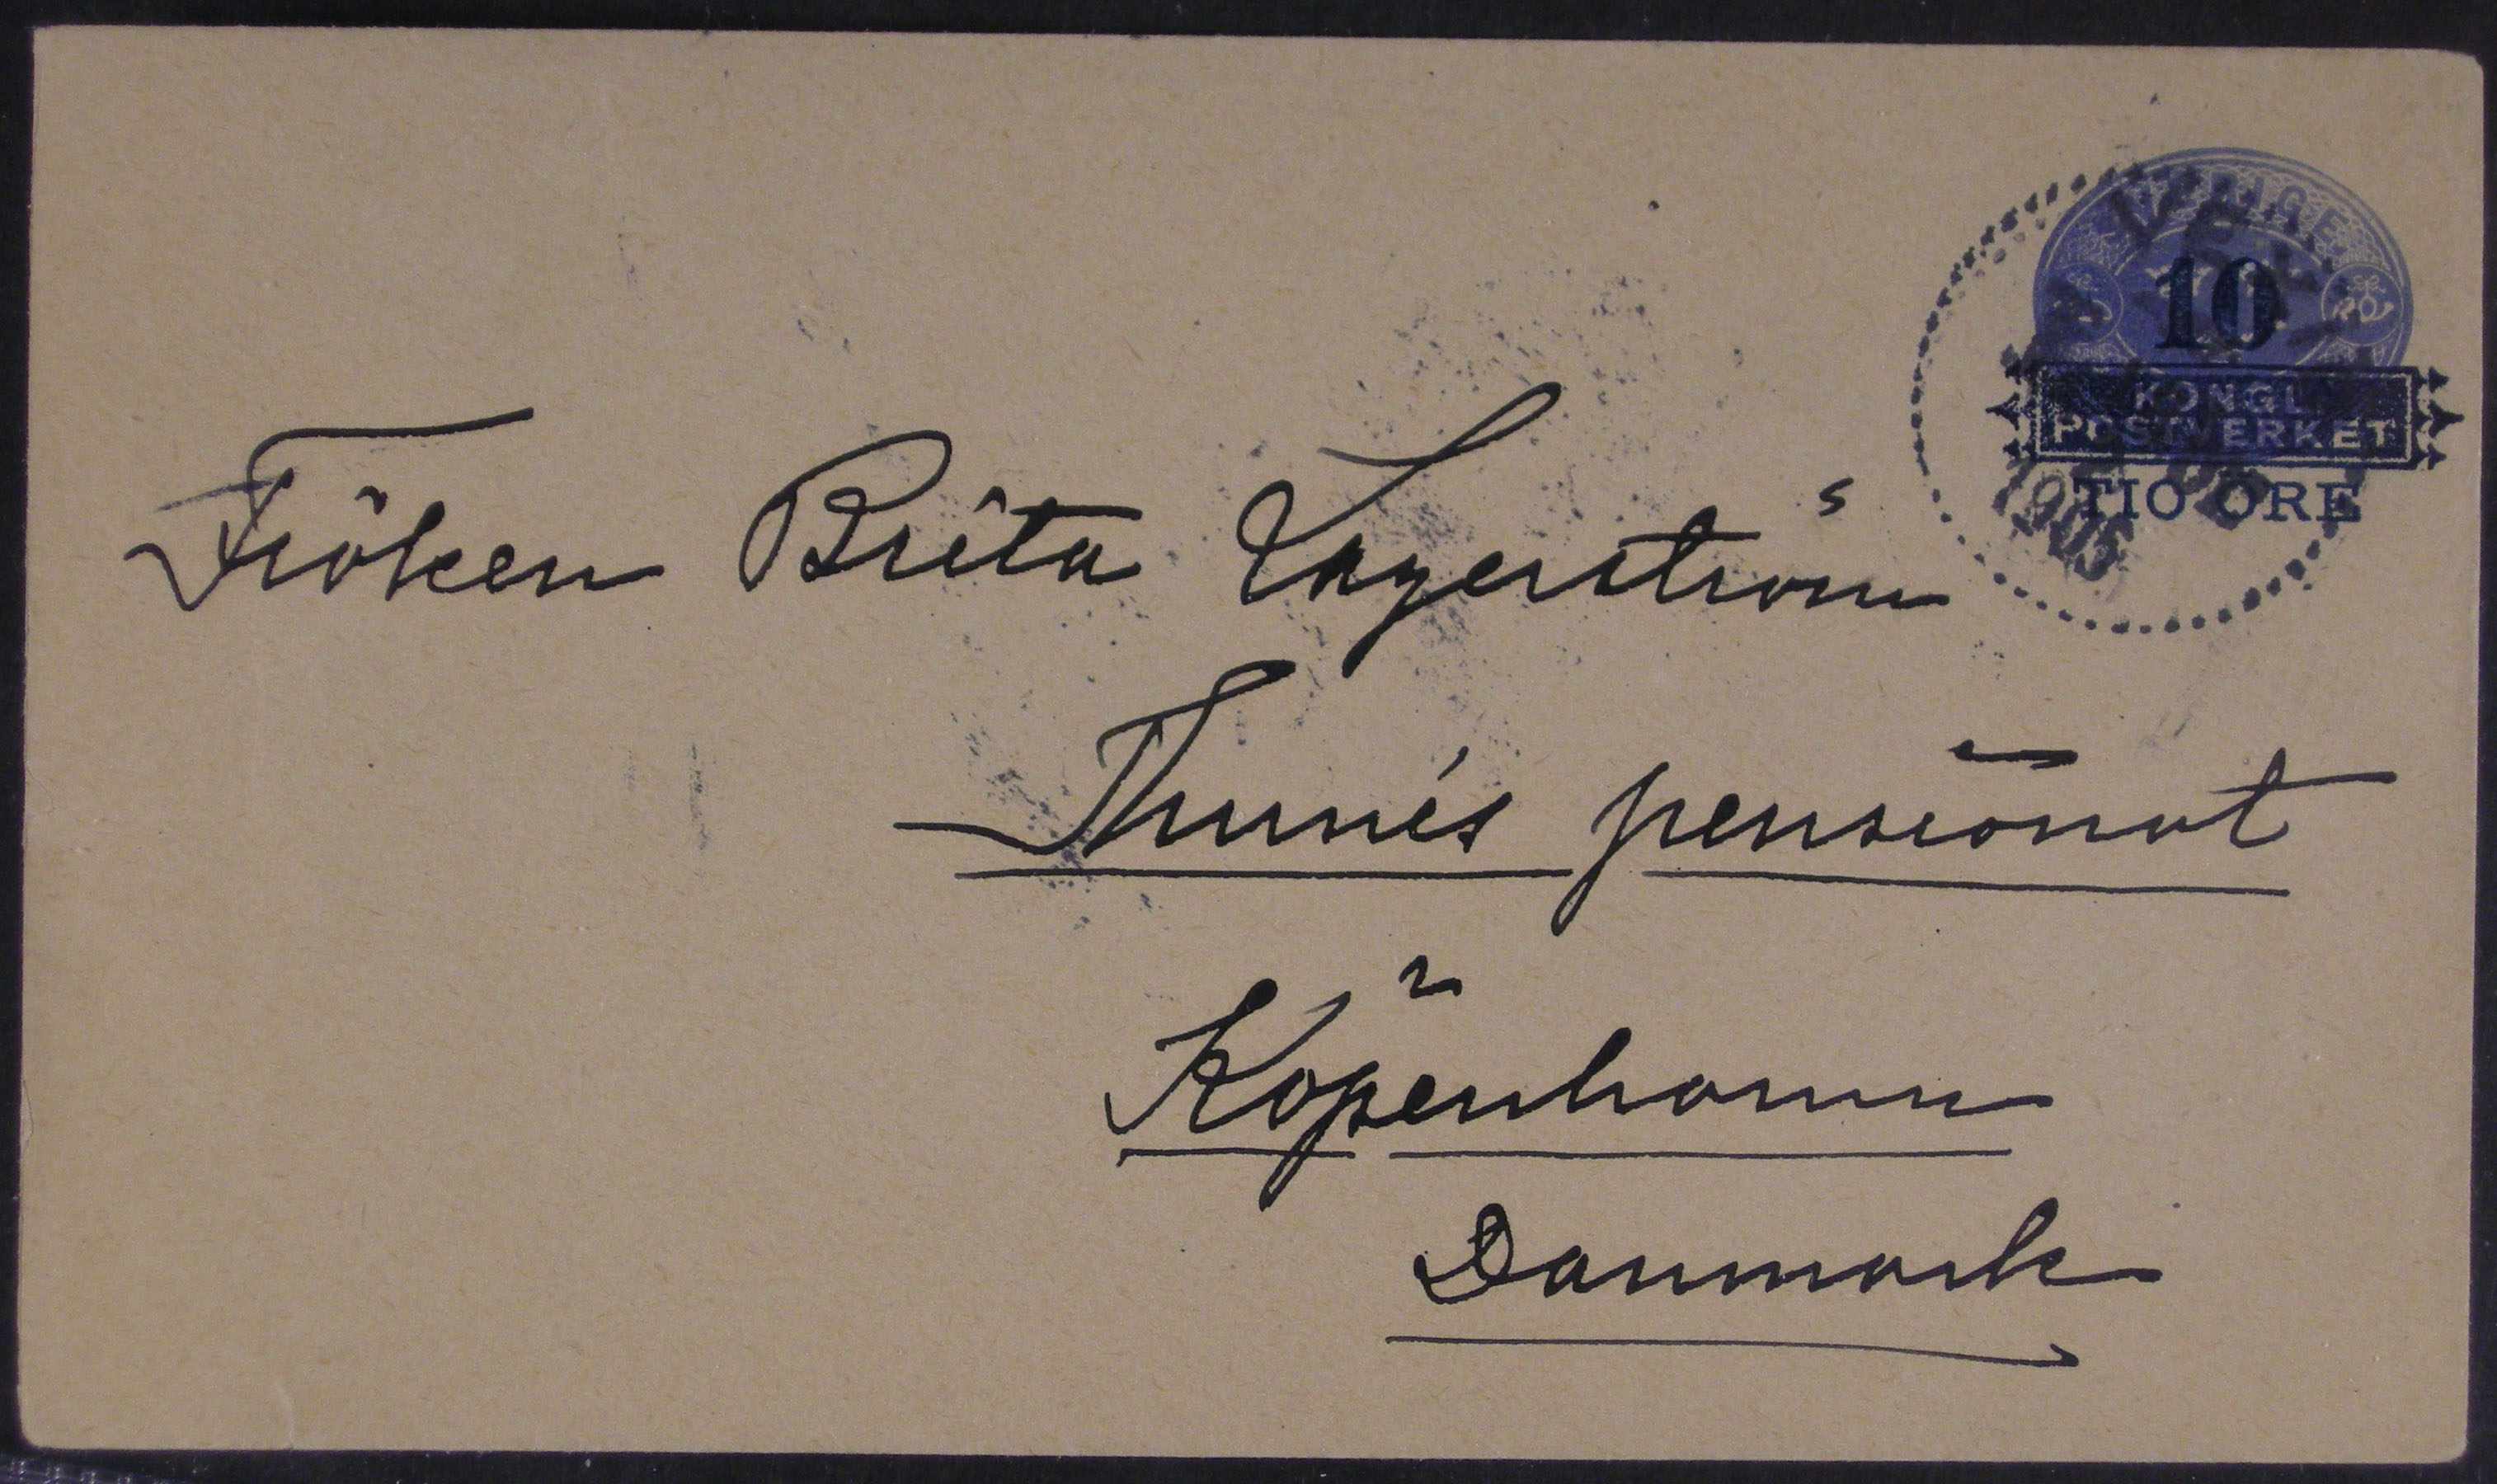 SVERIGE
10
KONGL.
POSTVERKET
TIO ÖRE
1903
Fröken Brita Lagerström
Thunés pensionat
Köpenhamn
Danmark